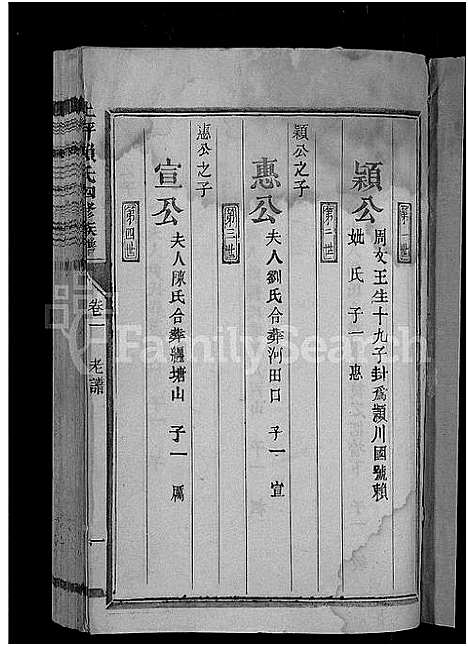 第一世
穎公
周文王生十九子卦爲頴川國號賴
妣氏 子一 惠
第二世
穎公之子
惠公
夫人劉氏合葬河田口 子一 宣
第三世
惠公之子
宣公
夫人陳氏合葬羅塘山 子一 厲
第四世
上坪賴氏四修族譜
卷一
老譜
一
FamilySearch